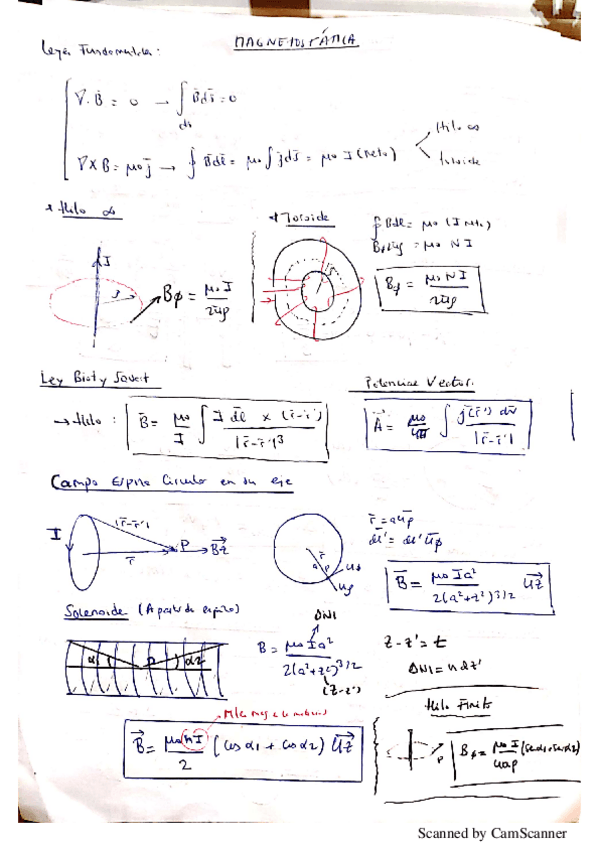 MAGNETOSTÁTICA
Leyes Fundamentales:
∇·B̄ = 0 → ∫ B̄ds̄ = 0
ds
∇×B̄ = μ₀j̄ → ∮ B̄dℓ̄ = μ₀∫j̄ds̄ = μ₀ I (neto)
Hilo ∞
toroide
* Hilo ∞
I
ρ
Bφ = μ₀I / 2πρ
* Toroide
∮Bdℓ = μ₀ (I neto)
Bφ2πρ = μ₀ N I
Bφ = μ₀NI / 2πρ
Ley Biot y Savart
→ Hilo :
B̄ = μ₀/I ∫ I dℓ̄ × (r̄-r̄') / |r̄-r̄'|³
Potencial Vector:
A⃗ = μ₀/4π ∫ j̄(r̄') dv / |r̄-r̄'|
Campo Espira Circular en su eje
I
|r̄-r̄'|
r̄
P
B⃗z
a
r̄
uφ
uρ
r̄ = a u̅ρ
dℓ̄' = dℓ' u̅φ
B̄ = μ₀Ia² / 2(a²+z²)^3/2 u⃗z
Solenoide (A partir de espiras)
α1
P
α2
ΔNI
B = μ₀Ia² / 2(a²+z²)^3/2
(z-z')
z-z' = t
ΔNI = n dz'
B⃗ = μ₀nI / 2 (cos α1 + cos α2) u⃗z
Hilo Finito
P
Bφ = μ₀I / 4πρ
Scanned by CamScanner